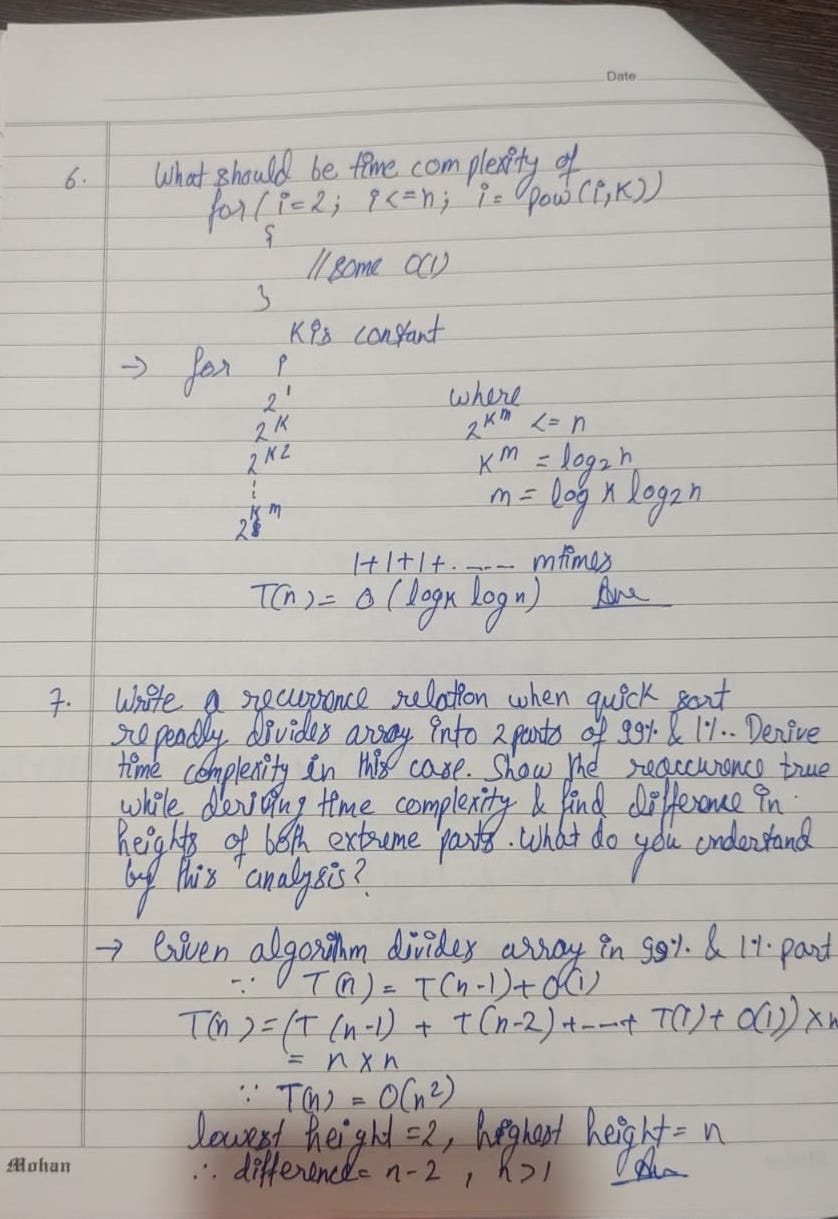 Date
6. What should be time complexity of
for(i=2; i<=n; i= pow(i,K))
{
//some O(1)
}
K is constant
→ for i
2¹ where
2^K 2^K^m <= n
2^K2 K^m = log₂n
⋮ m = log K log₂n
2^K^m
1+1+1+..... m times
T(n) = O (logK log n) Ans
7. Write a recurrance relation when quick sort
repeadly divides array into 2 parts of 99% & 1%.. Derive
time complexity in this case. Show the reaccurence true
while deriving time complexity & find difference in
heights of both extreme parts. What do you understand
by this analysis?
→ Given algorithm divides array in 99% & 1% part
∵ T(n) = T(n-1)+O(1)
T(n) = (T(n-1) + T(n-2)+---+ T(1) + O(1)) × n
= n × n
∵ T(n) = O(n²)
lowest height = 2, highest height = n
∴ difference = n-2 , n>1 Ans
Mohan